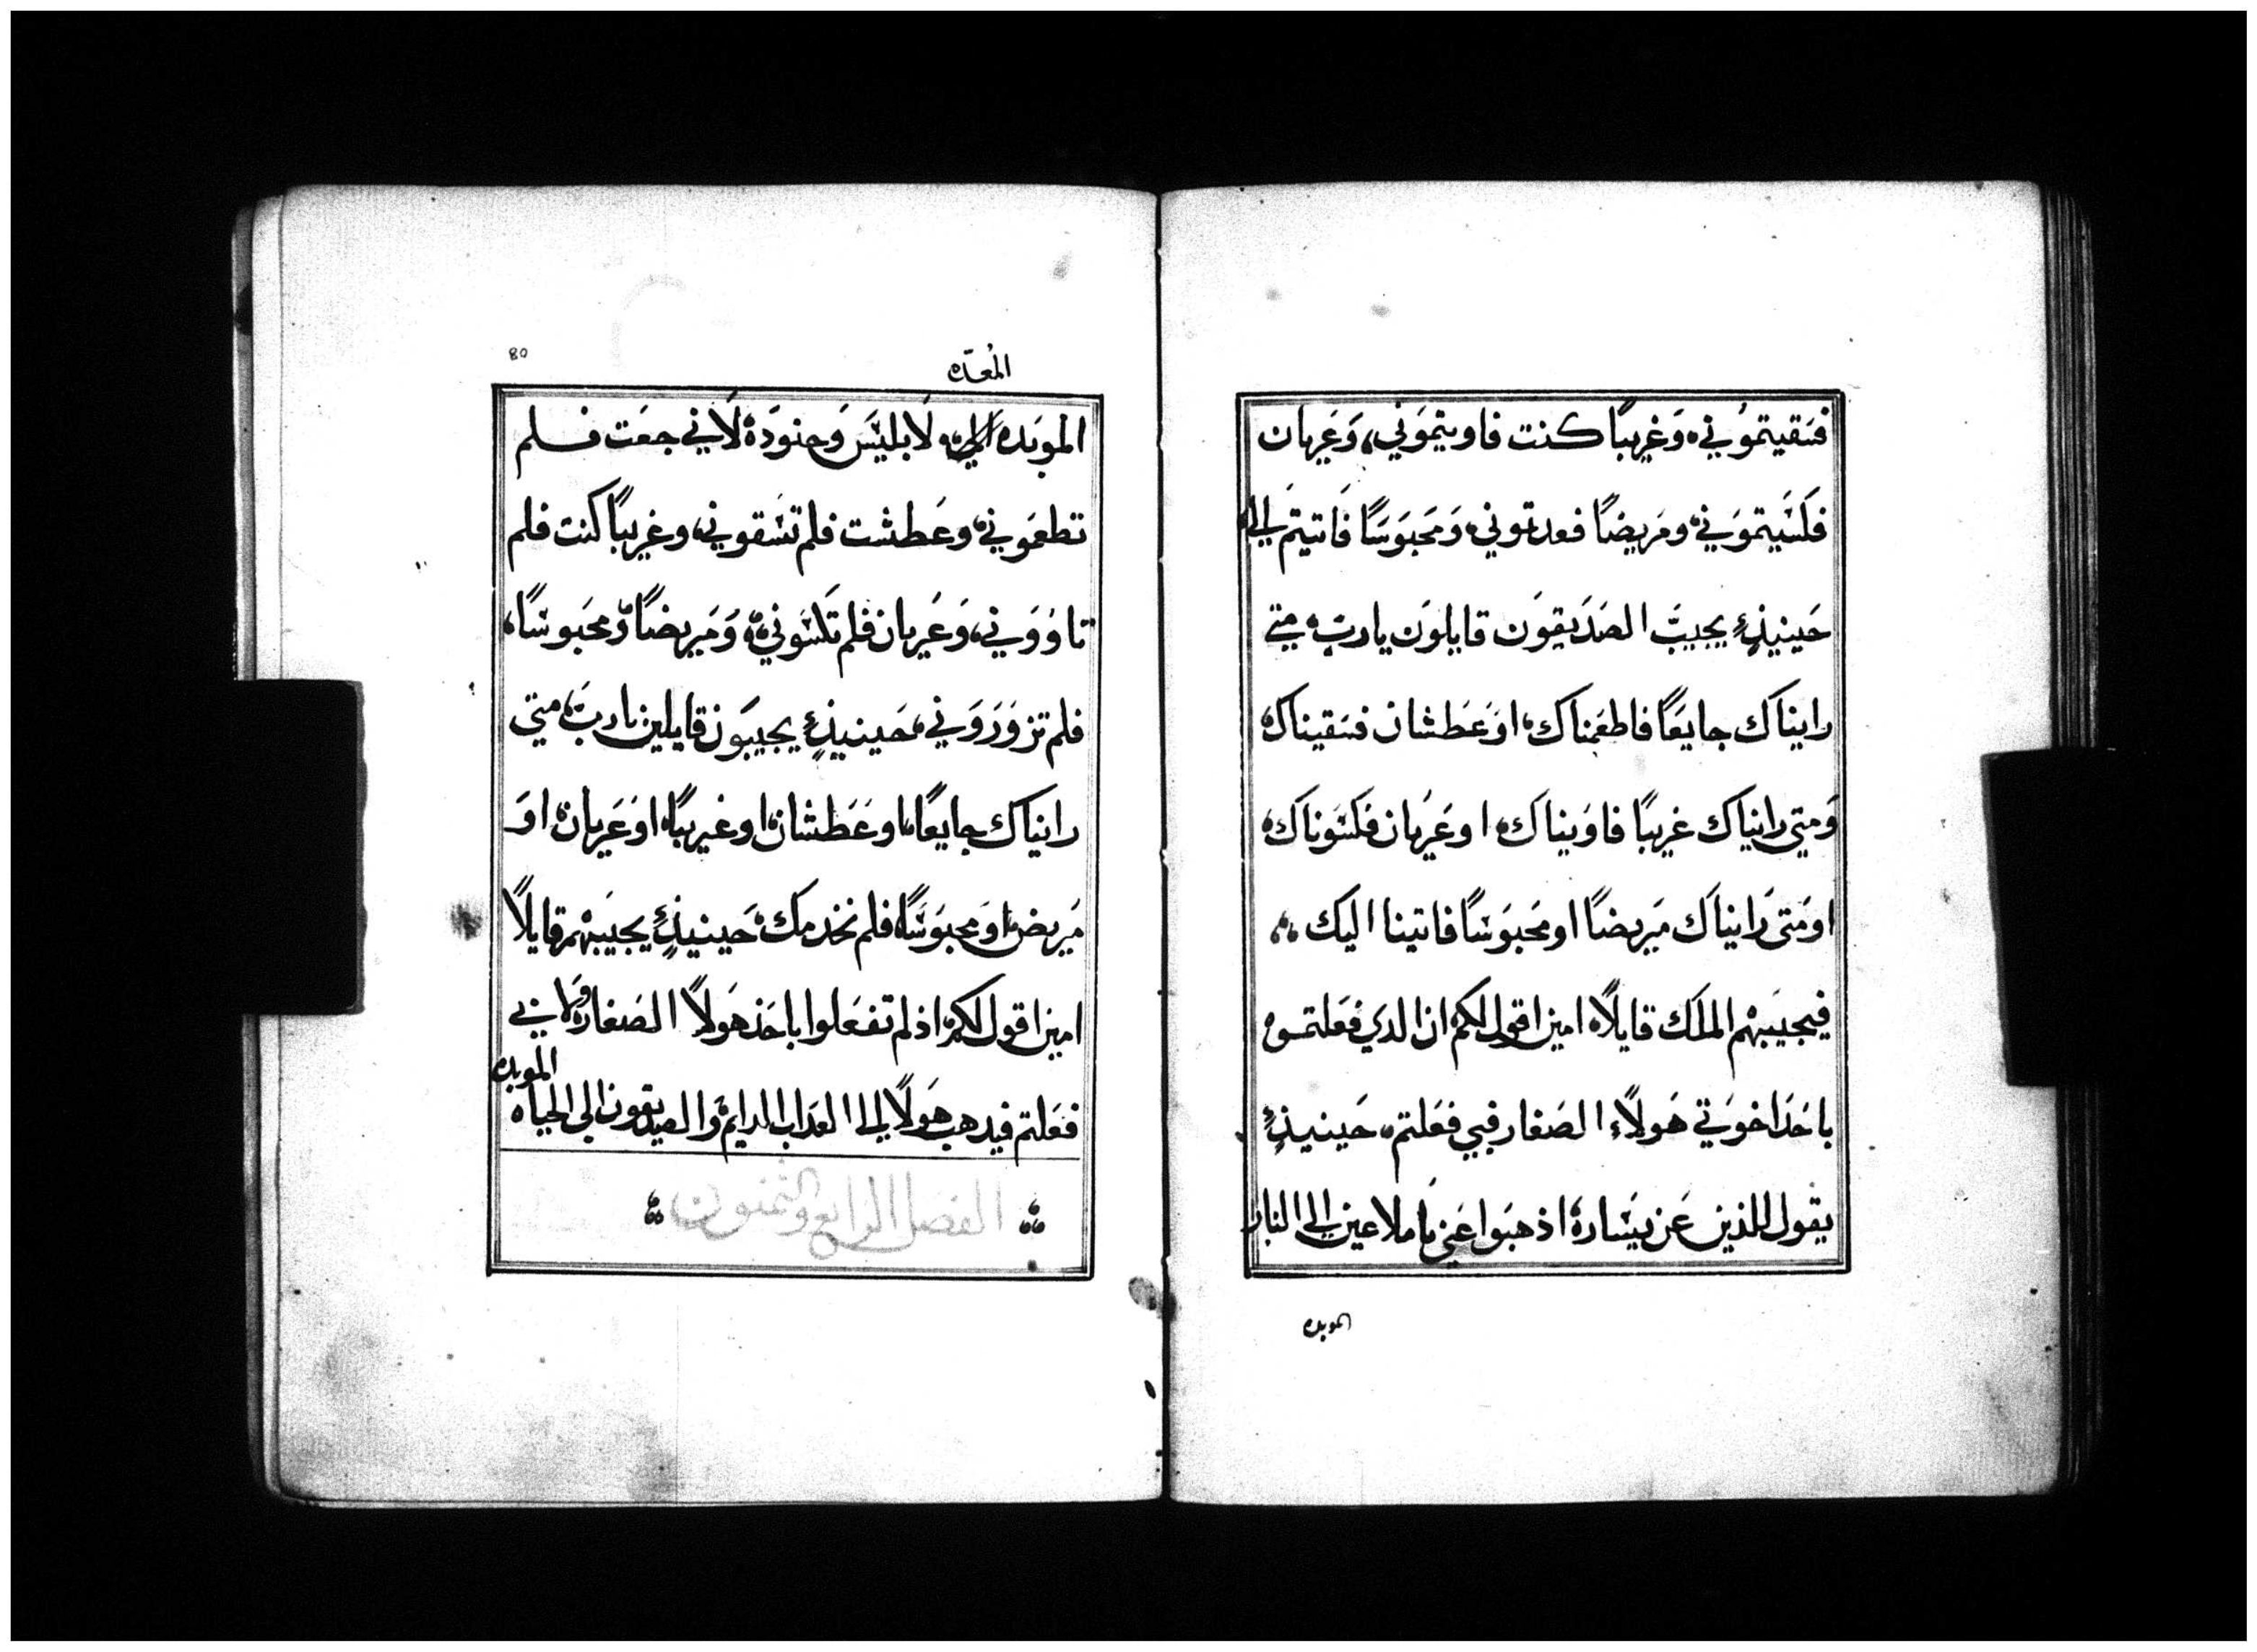 فسقيتموني، وَغريبًا كنت فاويتموني، وَعَريان
فكسَيتموَني، ومَريضًا فعدتموني، وَمَحبوَسَا فَاتيتم الي،
حَينيذٍ يجيبَ الصَدَيقوَن قايلوَن يارب، متي
رايناك جايعًا فاطعَمناك، اوَعَطشان فسقيناك،
وَمتي رايناك غريبًا فاوَيناك، اوعَريان فكسَوناك،
اومَتى رَايناَك مَريضًا اومَحبوَسًا فاتينا اليك،
فيجيبَهم الملَك قايلًا، امين اقول لكم ان الدي فعَلتموه
باحَدَ اخوَتي هَولاَء الصَغار فبي فعَلتم، حَينيذٍ
يقول للذين عَن يسَاره، اذهبَوا عَني يَا ملاعين الي النار
الموبده
80
المُعدّه
الموبَده لَابليسَ وَجنودَه لَاني جعَت فلم
تطعمَوني، وعَطشت فلم تسَقوني، وغريبًا كنت فلم
تاوُوَني، وَعَريان فلم تَكسَوني، وَمَريضًا وَمحبَوسًا،
فلم تزوَرَوَني، حَينيذٍ يجيبَون قايلين يارب، متي
رايناك جايعًا، اوعَطشان، اوغريبًا، اوَعَريان، اوَ
مَريض، اوَمحبوَسًا، فلم نخدمك، حَينيذٍ يجيبَهم قايلًا
امين اقول لكم، اذ لم تفعَلوا باحَد هَولاَ الصَغار، ولا بي
فعَلتم فيدهب هَولَا الي العدَاب الدايم، والصديقون الي الحياه
الموبده
الفصل الرابع والثمنون